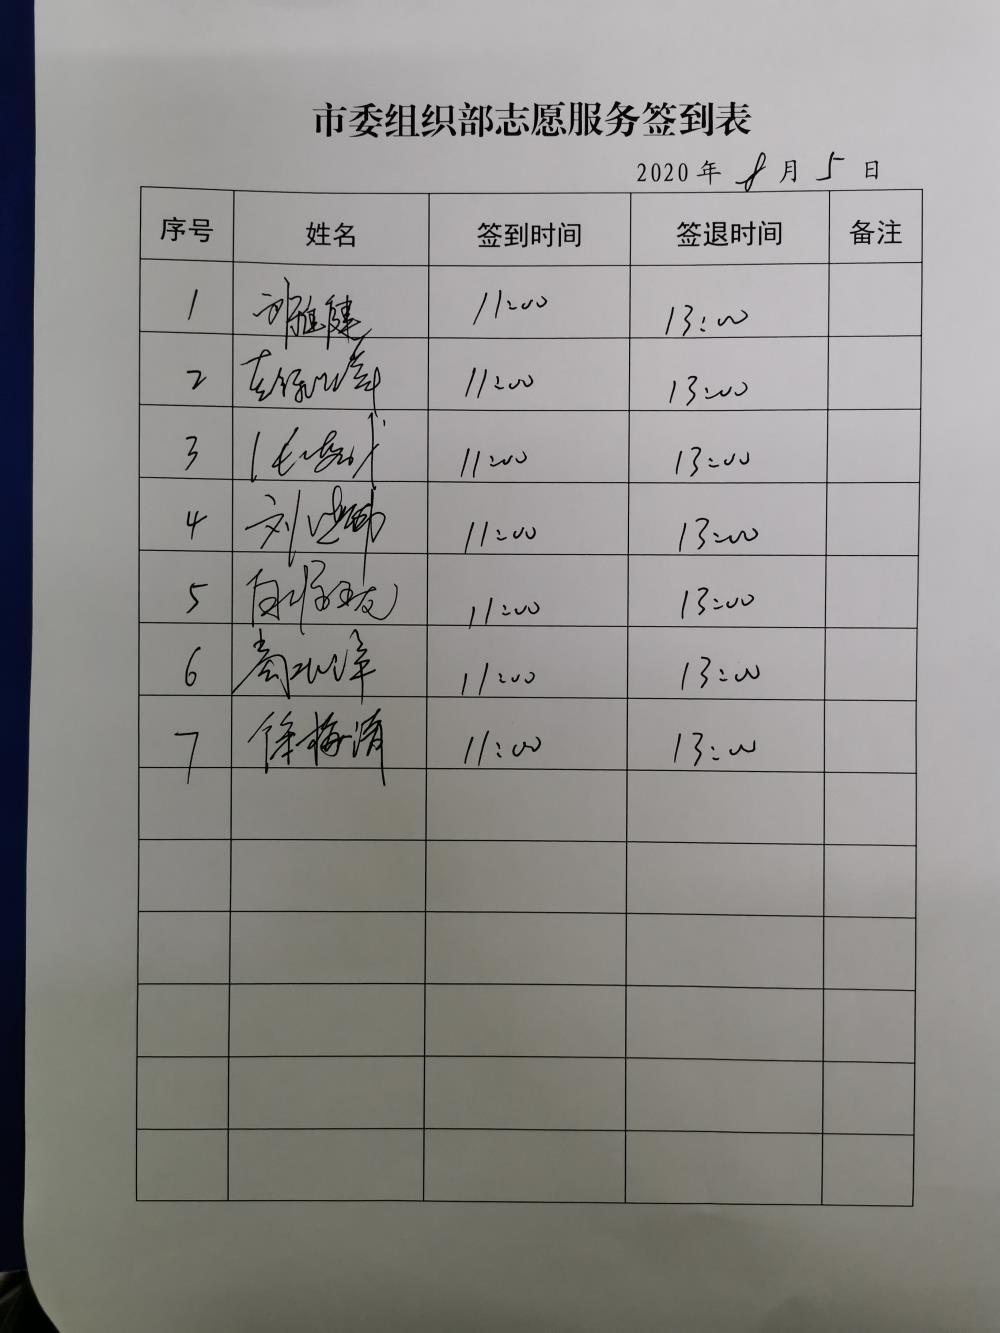 市委组织部志愿服务签到表
2020 年 8 月 5 日
序号 姓名 签到时间 签退时间 备注
1 11:00 13:00
2 11:00 13:00
3 11:00 13:00
4 刘 11:00 13:00
5 11:00 13:00
6 11:00 13:00
7 徐梅清 11:00 13:00